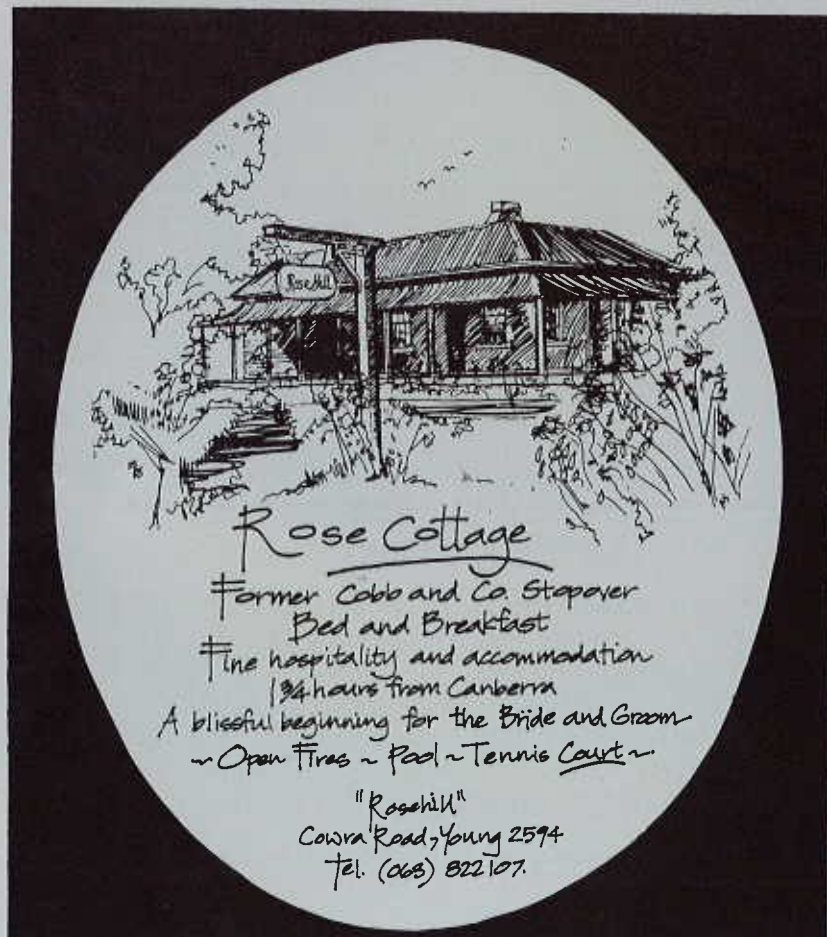 Rose Hill
Rose Cottage
Former Cobb and Co. Stopover
Bed and Breakfast
Fine hospitality and accommodation
1¾ hours from Canberra
A blissful beginning for the Bride and Groom
~ Open Fires ~ Pool ~ Tennis Court ~
"Rosehill"
Cowra Road, Young 2594
Tel. (063) 822107.